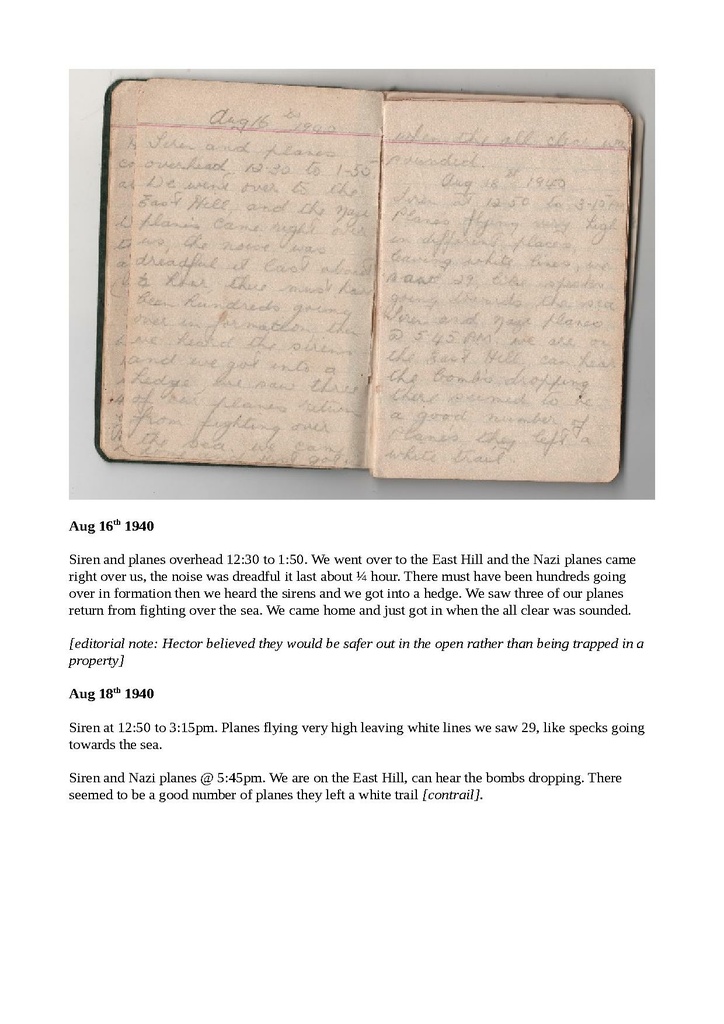 Aug 16 1940
Siren and planes
overhead, 12-30 to 1-50
We went over to the
East Hill, and the Nazi
planes came right over
us, the noise was
dreadful it last about
¼ hour there must have
been hundreds going
over in formation then
we heard the sirens
and we got into a
hedge, we saw three
of our planes return
from fighting over
the sea. we came
when the all clear was
sounded.
Aug 18 1940
Siren at 12-50 to 3-15 PM
Planes flying very high
in different places
leaving white lines, we
saw 29, like specks
going towards the sea
Siren and Nazi planes
@ 5-45 PM. we are on
the East Hill, can hear
the bombs dropping
there seemed to be
a good number of
planes they left a
white trail.
Aug 16th 1940
Siren and planes overhead 12:30 to 1:50. We went over to the East Hill and the Nazi planes came
right over us, the noise was dreadful it last about ¼ hour. There must have been hundreds going
over in formation then we heard the sirens and we got into a hedge. We saw three of our planes
return from fighting over the sea. We came home and just got in when the all clear was sounded.
[editorial note: Hector believed they would be safer out in the open rather than being trapped in a
property]
Aug 18th 1940
Siren at 12:50 to 3:15pm. Planes flying very high leaving white lines we saw 29, like specks going
towards the sea.
Siren and Nazi planes @ 5:45pm. We are on the East Hill, can hear the bombs dropping. There
seemed to be a good number of planes they left a white trail [contrail].